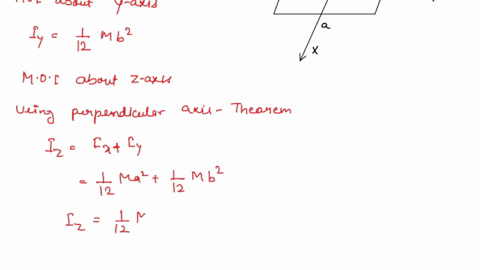 about y-axis
I_y = 1/12 Mb²
M.O.I about z-axis
Using perpendicular axis-Theorem
I_z = I_x + I_y
= 1/12 Ma² + 1/12 Mb²
I_z = 1/12 M
a
x